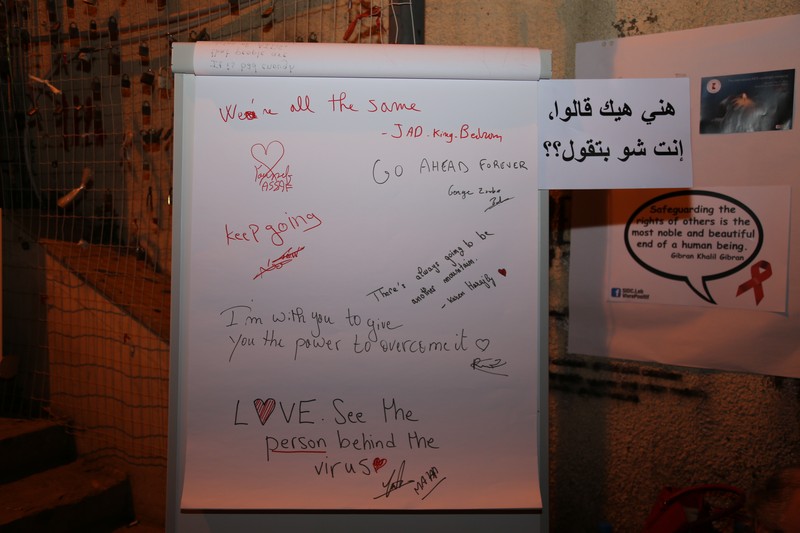 We're all the same
- JAD. King. Bedroom
ASSAF
GO AHEAD FOREVER
George
Keep going
There's always going to be
another mountain.
- Karen
I'm with you to give
you the power to overcome it ♡
L♥VE. See the
person behind the
virus♥
هني هيك قالوا،
إنت شو بتقول؟؟
Safeguarding the
rights of others is the
most noble and beautiful
end of a human being.
Gibran Khalil Gibran